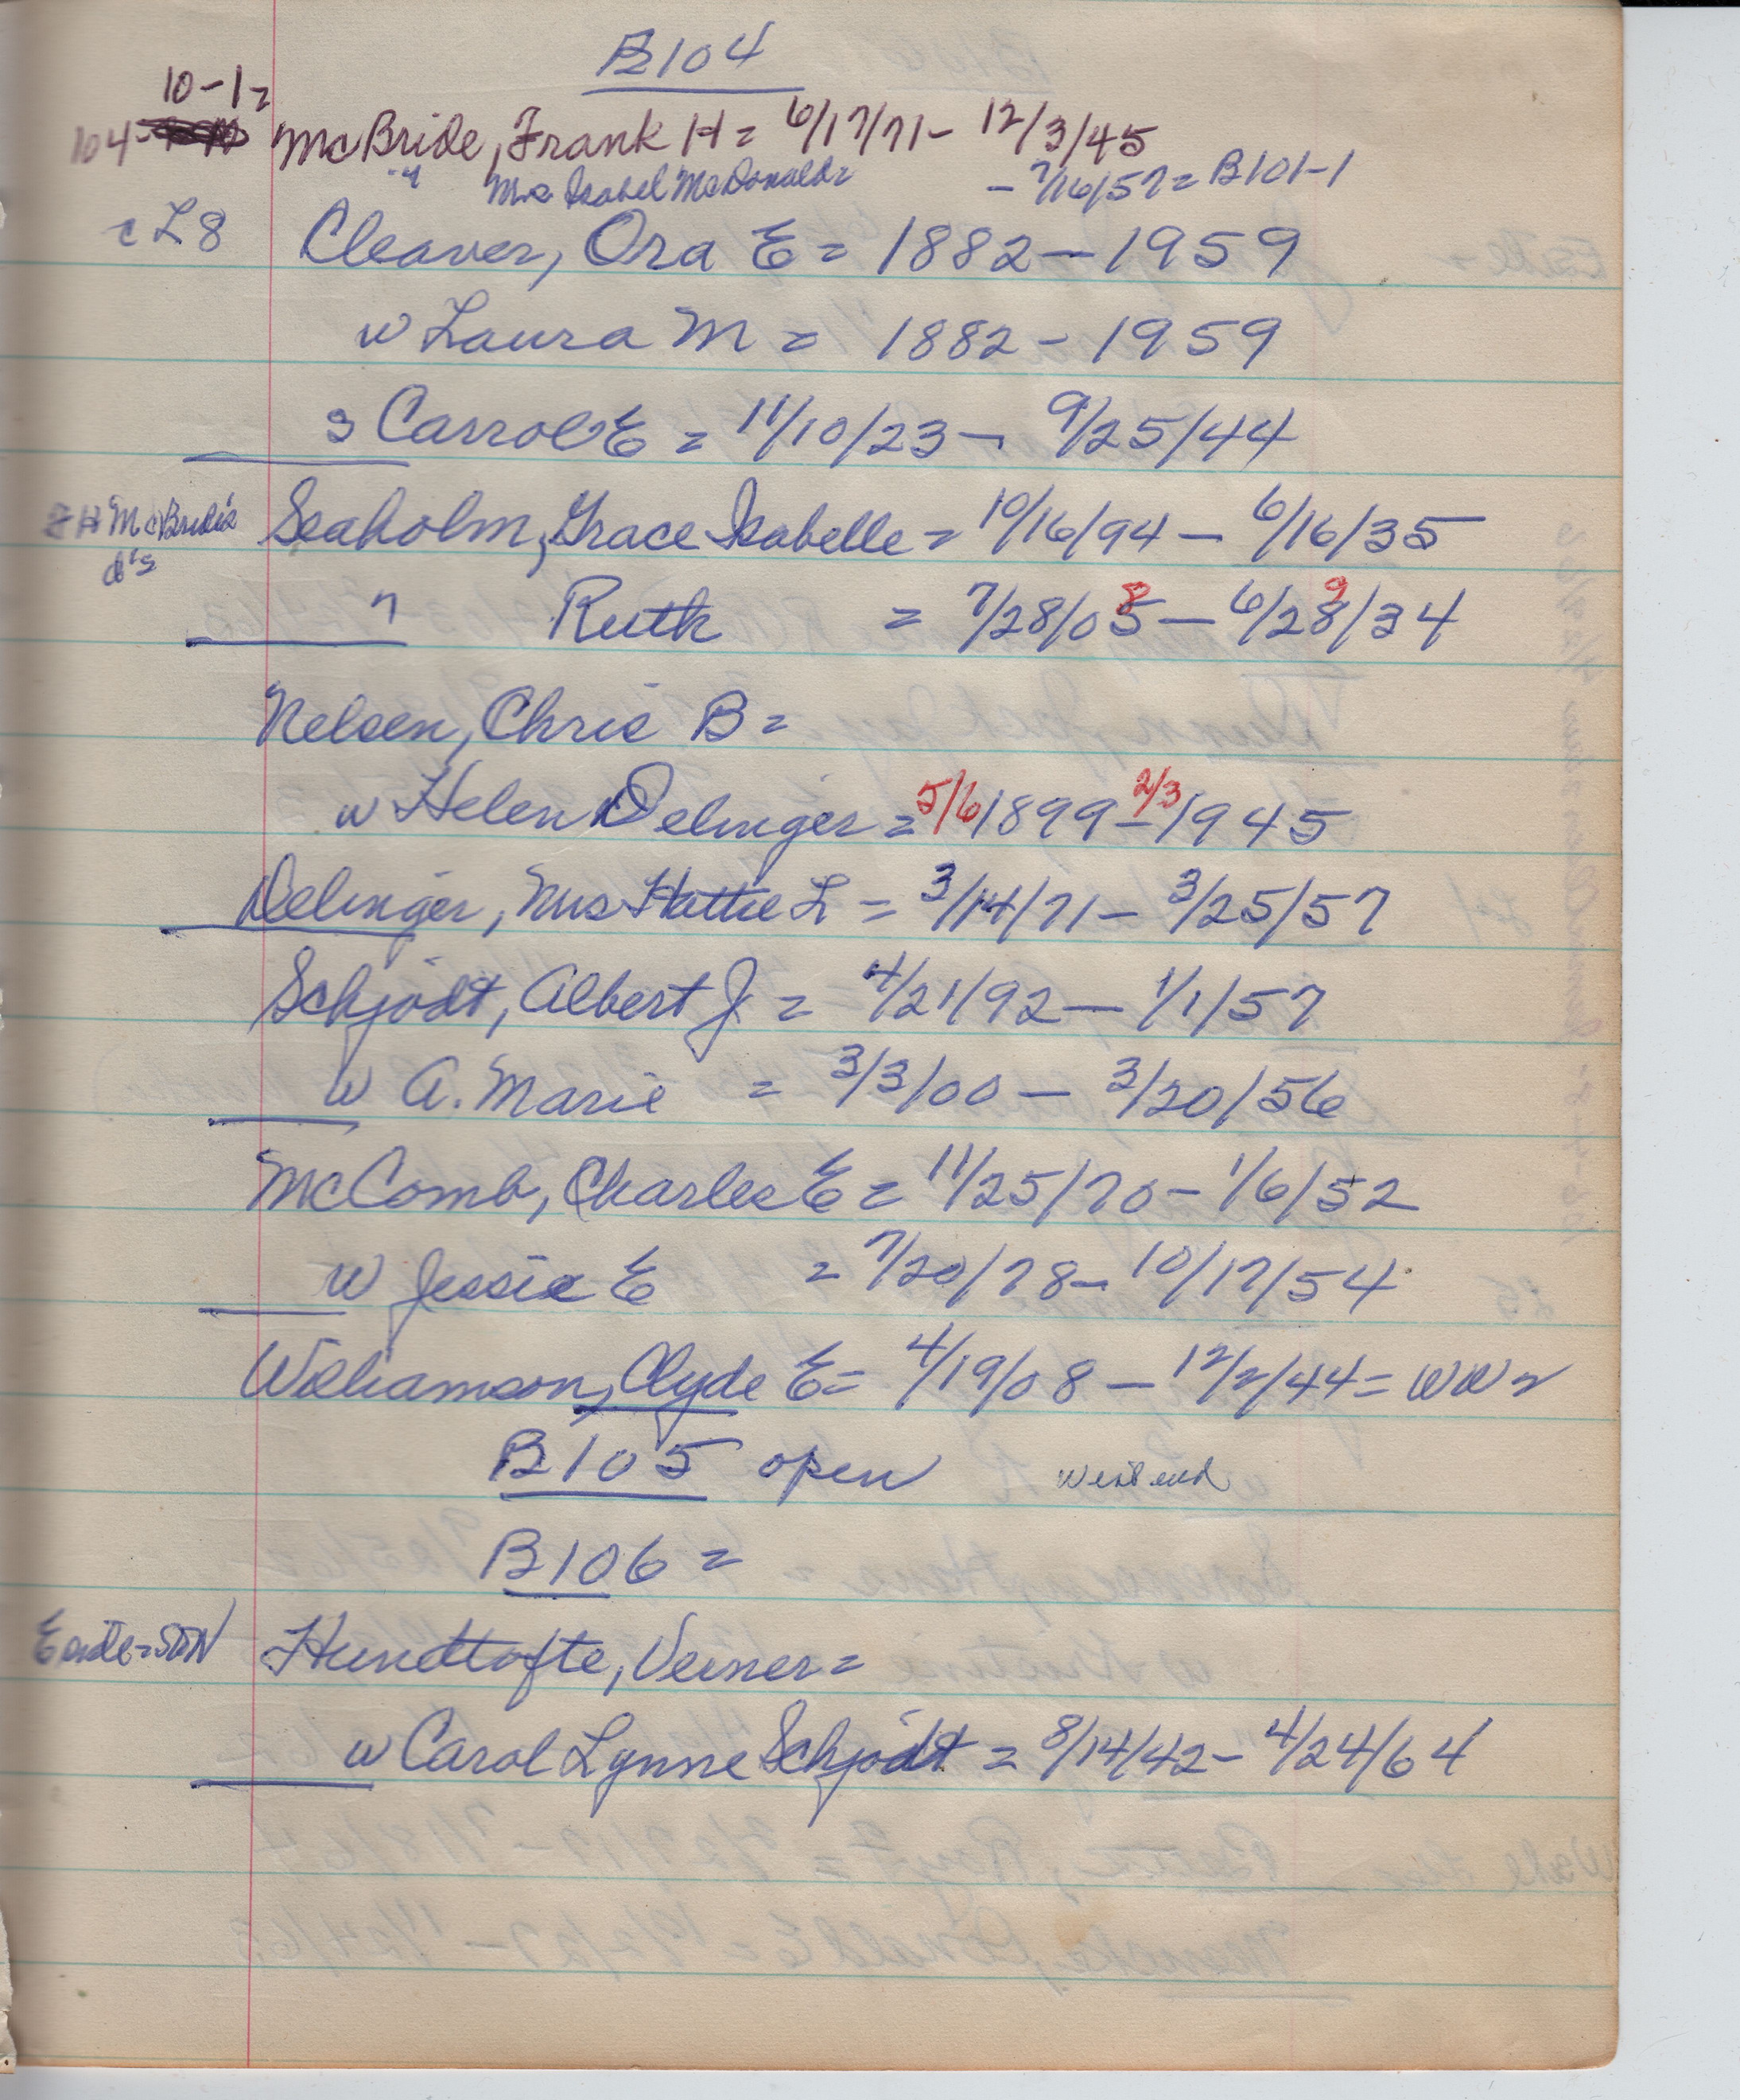 B104
10-1=
104 McBride, Frank H = 6/17/71 - 12/3/45
" Mrs Isabel McDonald = - 7/16/57 = B101-1
L8 Cleaver, Ora E = 1882 - 1959
w Laura M = 1882 - 1959
s Carrol E = 11/10/23 - 9/25/44
F H McBride's Seaholm, Grace Isabelle = 10/16/94 - 6/16/35
d's
8 9
" Ruth = 7/28/05 - 6/28/34
Nelsen, Chris B =
w Helen Delinger = 5/6 1899 - 2/3 1945
Delinger, Mrs Hattie L = 3/14/71 - 3/25/57
Schjödt, Albert J = 4/21/92 - 1/1/57
w A. Marie = 3/3/00 - 3/20/56
McComb, Charles E = 11/25/70 - 1/6/52
w Jessie E = 7/20/78 - 10/17/54
Williamson, Clyde E = 4/19/08 - 12/2/44 = WW2
B105 open West end
B106 =
Hundtofte, Verner =
w Carol Lynne Schjödt = 8/14/42 - 4/24/64